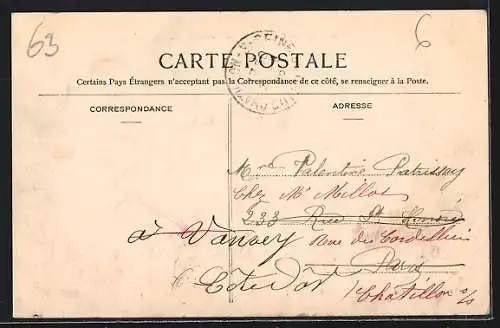 63
6
CARTE POSTALE
Certains Pays Étrangers n'acceptant pas la Correspondance de ce côté, se renseigner à la Poste.
CORRESPONDANCE
ADRESSE
Valentine
Chez Mr Millot
233 Rue St Honoré
à Vanvey
Rue des Cordeliers
Paris
Côte d'Or
Châtillon s/s